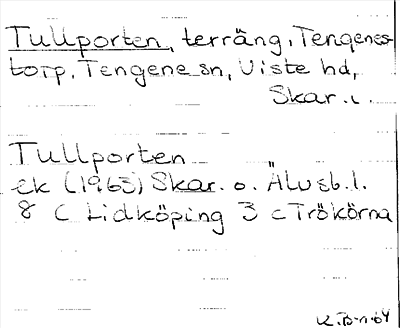 Tullporten, terräng, Tengenes-
torp, Tengene sn, Viste hd,
Skar. l.
Tullporten
ek (1963) Skar. o. Älvsb. l.
8 C Lidköping 3 c Trökörna
K. B-n 64